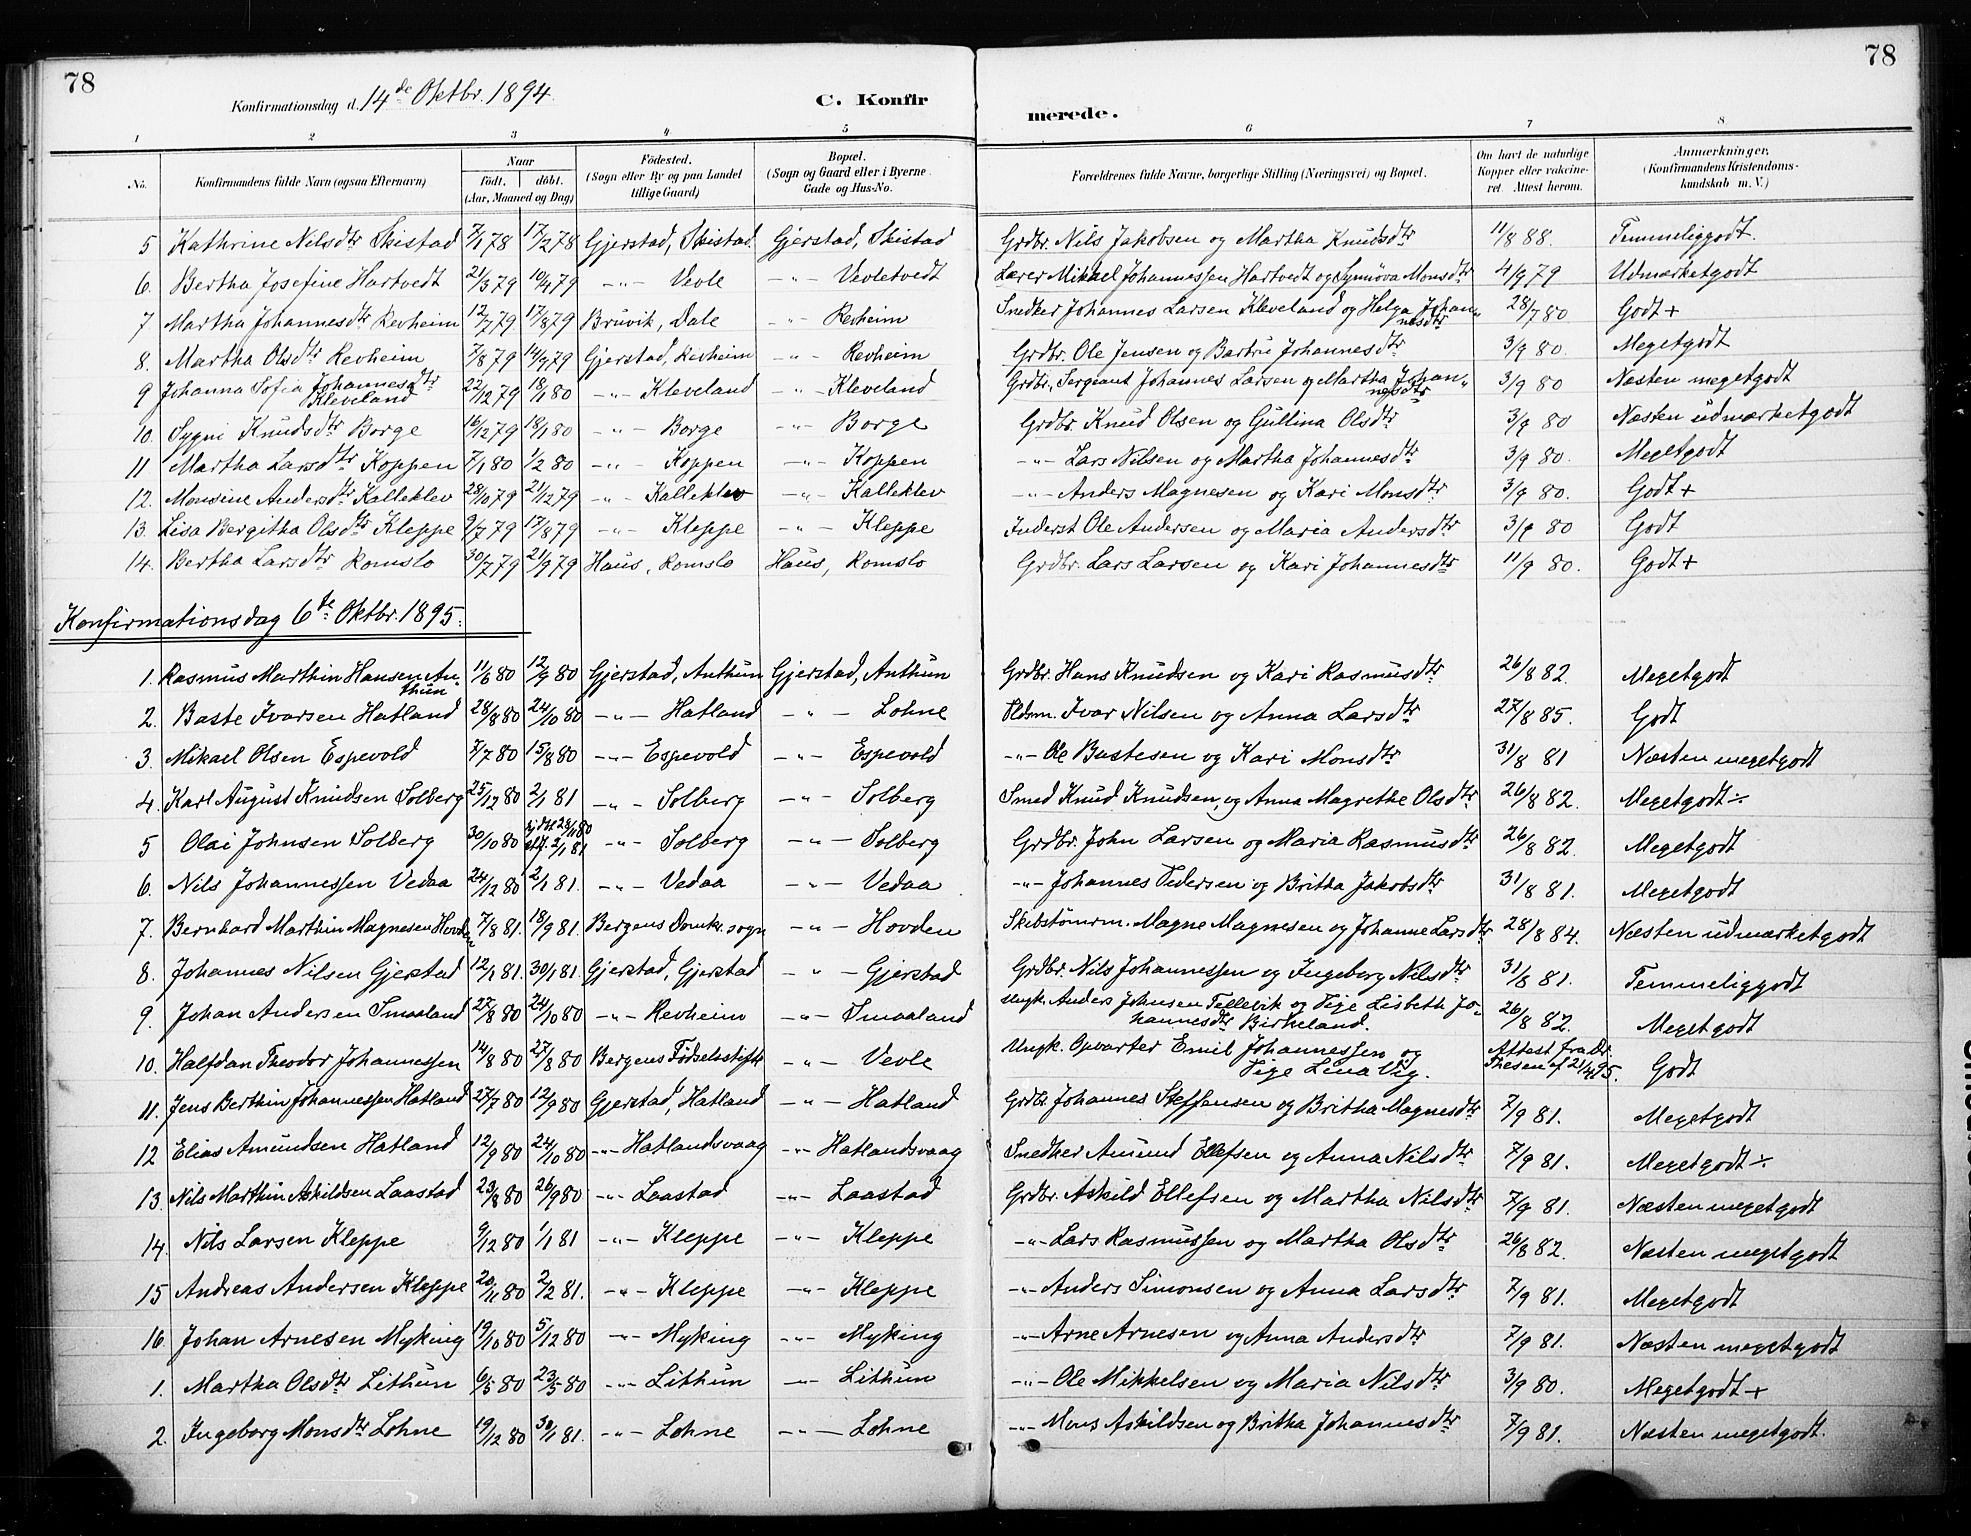 78
Konfirmationsdag d. 14de Oktbr. 1894.
C. Konfir
merede.
78
1 2 3 4 5 6 7 8
No.
Konfirmandens fulde Navn (ogsaa Efternavn)
Naar
Födt. döbt.
(Aar, Maaned og Dag)
Födested.
(Sogn eller By og paa Landet
tillige Gaard)
Bopæl.
(Sogn og Gaard eller i Byerne
Gade og Hus-No.
Forældrenes fulde Navne, borgerlige Stilling (Næringsvei) og Bopæl.
Om havt de naturlige
Kopper eller vakcine-
ret. Attest herom.
Anmærkninger.
(Konfirmandens Kristendoms-
kundskab m. V.)
5 Kathrine Nilsdtr Skistad 7/1 78 17/2 78 Gjerstad, Skistad Gjerstad, Skistad Grdbr. Nils Jakobsen og Martha Knudsdtr 11/8 88. Temmeliggodt.
6. Bertha Josefine Hartvedt 21/3 79 10/4 79 -"- Vevle -"- Vevletvedt Lærer Mikael Johannessen Hartvedt og Synnöva Monsdtr 4/9 79 Udmærketgodt
7 Martha Johannesdtr Revheim 12/7 79 17/8 79 Bruvik, Dale -"- Revheim Snedker Johannes Larsen Kleveland og Helga Johan-
nesdtr 28/7 80 Godt +
8. Martha Olsdtr Revheim 7/8 79 14/9 79 Gjerstad, Revheim -"- Revheim Grdbr. Ole Jensen og Barbru Johannesdtr 3/9 80. Megetgodt
9 Johanna Sofia Johannesdtr
Kleveland 22/12 79 18/1 80 -"- Kleveland -"- Kleveland Grdbr., Sergeant Johannes Larsen og Martha Johan-
nesdtr 3/9 80 Næsten megetgodt
10. Sygni Knudsdtr Borge 16/12 79 18/1 80 -"- Borge -"- Borge Grdbr. Knud Olsen og Gullina Olsdtr 3/9 80 Næsten udmærketgodt
11 Martha Larsdtr Koppen 7/1 80 1/2 80 -"- Koppen -"- Koppen -"- Lars Nilsen og Martha Johannesdtr 3/9 80. Megetgodt
12. Monsine Andersdtr Kalleklev 28/10 79 21/12 79 -"- Kalleklev -"- Kalleklev -"- Anders Magnesen og Kari Monsdtr 3/9 80. Godt +
13. Lisa Bergitha Olsdtr Kleppe 9/7 79 17/8 79 -"- Kleppe -"- Kleppe Inderst Ole Andersen og Maria Andersdtr 3/9 80 Godt
14. Bertha Larsdtr Romslo 30/7 79 21/9 79 Haus, Romslo Haus, Romslo Grdbr. Lars Larsen og Kari Johannesdtr 11/9 80. Godt +
Konfirmationsdag 6te Oktbr. 1895.
1. Rasmus Marthin Hansen An-
thun 11/6 80 12/9 80 Gjerstad, Anthun Gjerstad, Anthun Grdbr. Hans Knudsen og Kari Rasmusdtr 26/8 82. Megetgodt
2. Baste Ivarsen Hatland 28/8 80 24/10 80 -"- Hatland -"- Lohne Pldsm. Ivar Nilsen og Anna Larsdtr 27/8 85. Godt
3. Mikael Olsen Espevold 7/7 80 15/8 80 -"- Espevold -"- Espevold -"- Ole Bastesen og Kari Monsdtr 31/8 81 Næsten megetgodt
4. Karl August Knudsen Solberg 25/12 80 2/1 81 -"- Solberg -"- Solberg Smed Knud Knudsen, og Anna Magrethe Olsdtr 26/8 82. Megetgodt ÷
5 Olai Johnsen Solberg 30/10 80 2/1 81 -"- Solberg -"- Solberg Grdbr. John Larsen og Maria Rasmusdtr 26/8 82. Megetgodt
6. Nils Johannessen Vedaa 24/12 80 2/1 81. -"- Vedaa -"- Vedaa -"- Johannes Pedersen og Britha Jakobsdtr 31/8 81. Megetgodt
7. Bernhard Marthin Magnesen Hovden 7/8 81 18/9 81. Bergens Domk. sogn -"- Hovden Skibstömrm. Magne Magnesen og Johanne Larsdtr 28/8 84. Næsten udmærketgodt
8. Johannes Nilsen Gjerstad 12/1 81. 30/1 81. Gjerstad, Gjerstad -"- Gjerstad Grdbr. Nils Johannessen og Ingeborg Nilsdtr 31/8 81. Temmeliggodt
9. Johan Andersen Smaaland 27/8 80 24/10 80 -"- Revheim -"- Smaaland Ungk. Anders Johnsen Tellevik og Pige Lisbeth Jo-
hannesdtr Birkeland. 26/8 82. Megetgodt
10. Halfdan Theodor Johannessen 14/8 80 27/8 80 Bergens Födselsstift. -"- Vevle Ungk. Opvarter Emil Johannessen og
Pige Lina Vig. Attest fra Dr.
Thesen af 21/4 95. Godt
11. Jens Berthin Johannessen Hatland 27/7 80 12/9 80 Gjerstad, Hatland -"- Hatland Grdbr. Johannes Steffensen og Britha Magnesdtr 7/9 81. Megetgodt
12 Elias Amundsen Hatland 12/9 80 24/10 80 -"- Hatlandsvaag -"- Hatlandsvaag Snedker Amund Ellefsen og Anna Nilsdtr 7/9 81. Megetgodt ÷
13. Nils Marthin Askildsen Laastad 23/8 80 26/9 80 -"- Laastad -"- Laastad Grdbr. Askild Ellefsen og Martha Nilsdtr 7/9 81. Næsten megetgodt
14. Nils Larsen Kleppe 9/12 80 1/1 81 -"- Kleppe -"- Kleppe -"- Lars Rasmussen og Martha Olsdtr 26/8 82. Næsten megetgodt
15 Andreas Andersen Kleppe 20/11 80 2/2 81. -"- Kleppe -"- Kleppe -"- Anders Simonsen og Anna Larsdtr 7/9 81. Megetgodt
16. Johan Arnesen Myking 19/10 80 5/12 80 -"- Myking -"- Myking -"- Arne Arnesen og Anna Andersdtr 7/9 81. Næsten megetgodt
1. Martha Olsdtr Lithun 6/5 80 23/5 80 -"- Lithun -"- Lithun -"- Ole Mikkelsen og Maria Nilsdtr 3/9 80. Megetgodt +
2. Ingeborg Monsdtr Lohne 19/12 80 30/1 81. -"- Lohne -"- Lohne -"- Mons Askildsen og Britha Johannesdtr 7/9 81. Næsten megetgodt.